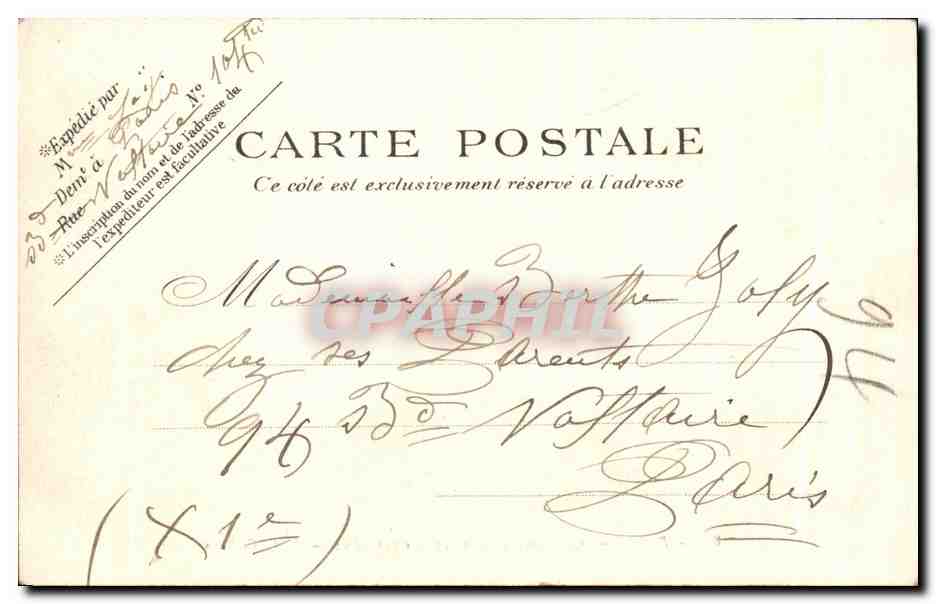 ※Expédié par
Mme
Demt à Paris
Bd Rue Voltaire No 104
※L'inscription du nom et de l'adresse de
l'expéditeur est facultative
CARTE POSTALE
Ce côté est exclusivement réservé à l'adresse
Mademoiselle Berthe Joly
chez ses Parents
94 Bd Voltaire
Paris
(XIe)
CPAPHIL